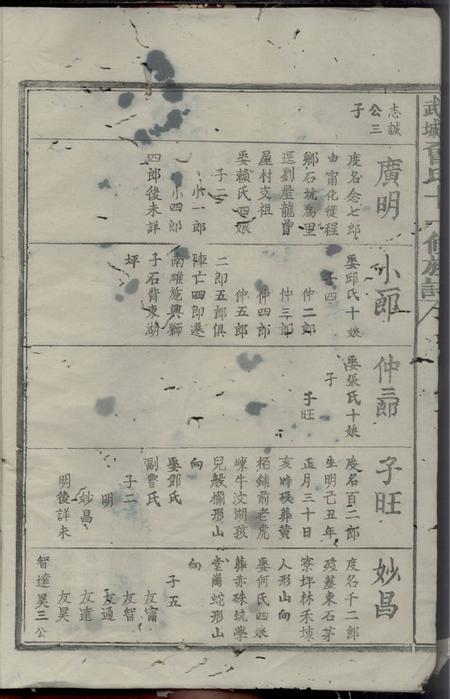 武城曾氏
志誠
公三
子
廣明
度名念七郎
由甯化從程
鄉石坑為里
遷劉屋龍曾
屋村支祖
娶賴氏四娘
子二
小一郎
小四郎
四郎後未詳
小一郎
娶邱氏十娘
子四
仲二郎
仲三郎
仲四郎
仲五郎
二郎五郎俱
陣亡四郎遷
南雄施興獅
子石背東湖
坪
仲三郎
娶張氏十娘
子
子旺
子旺
度名百二郎
生明己丑年
正月三十日
亥時歿葬黄
栢鋪前老虎
崠牛汶湖孩
兒般欄形山
向
娶鄧氏
副曹氏
子二
明
妙昌
明後詳未
妙昌
度名千二郎
歿葬東石茅
寮坪林禾㙇
人形山向
娶何氏四娘
葬赤硃坑學
堂崗蛇形山
向
子五
友甯
友智
友通
友達
友昊
智達昊三公